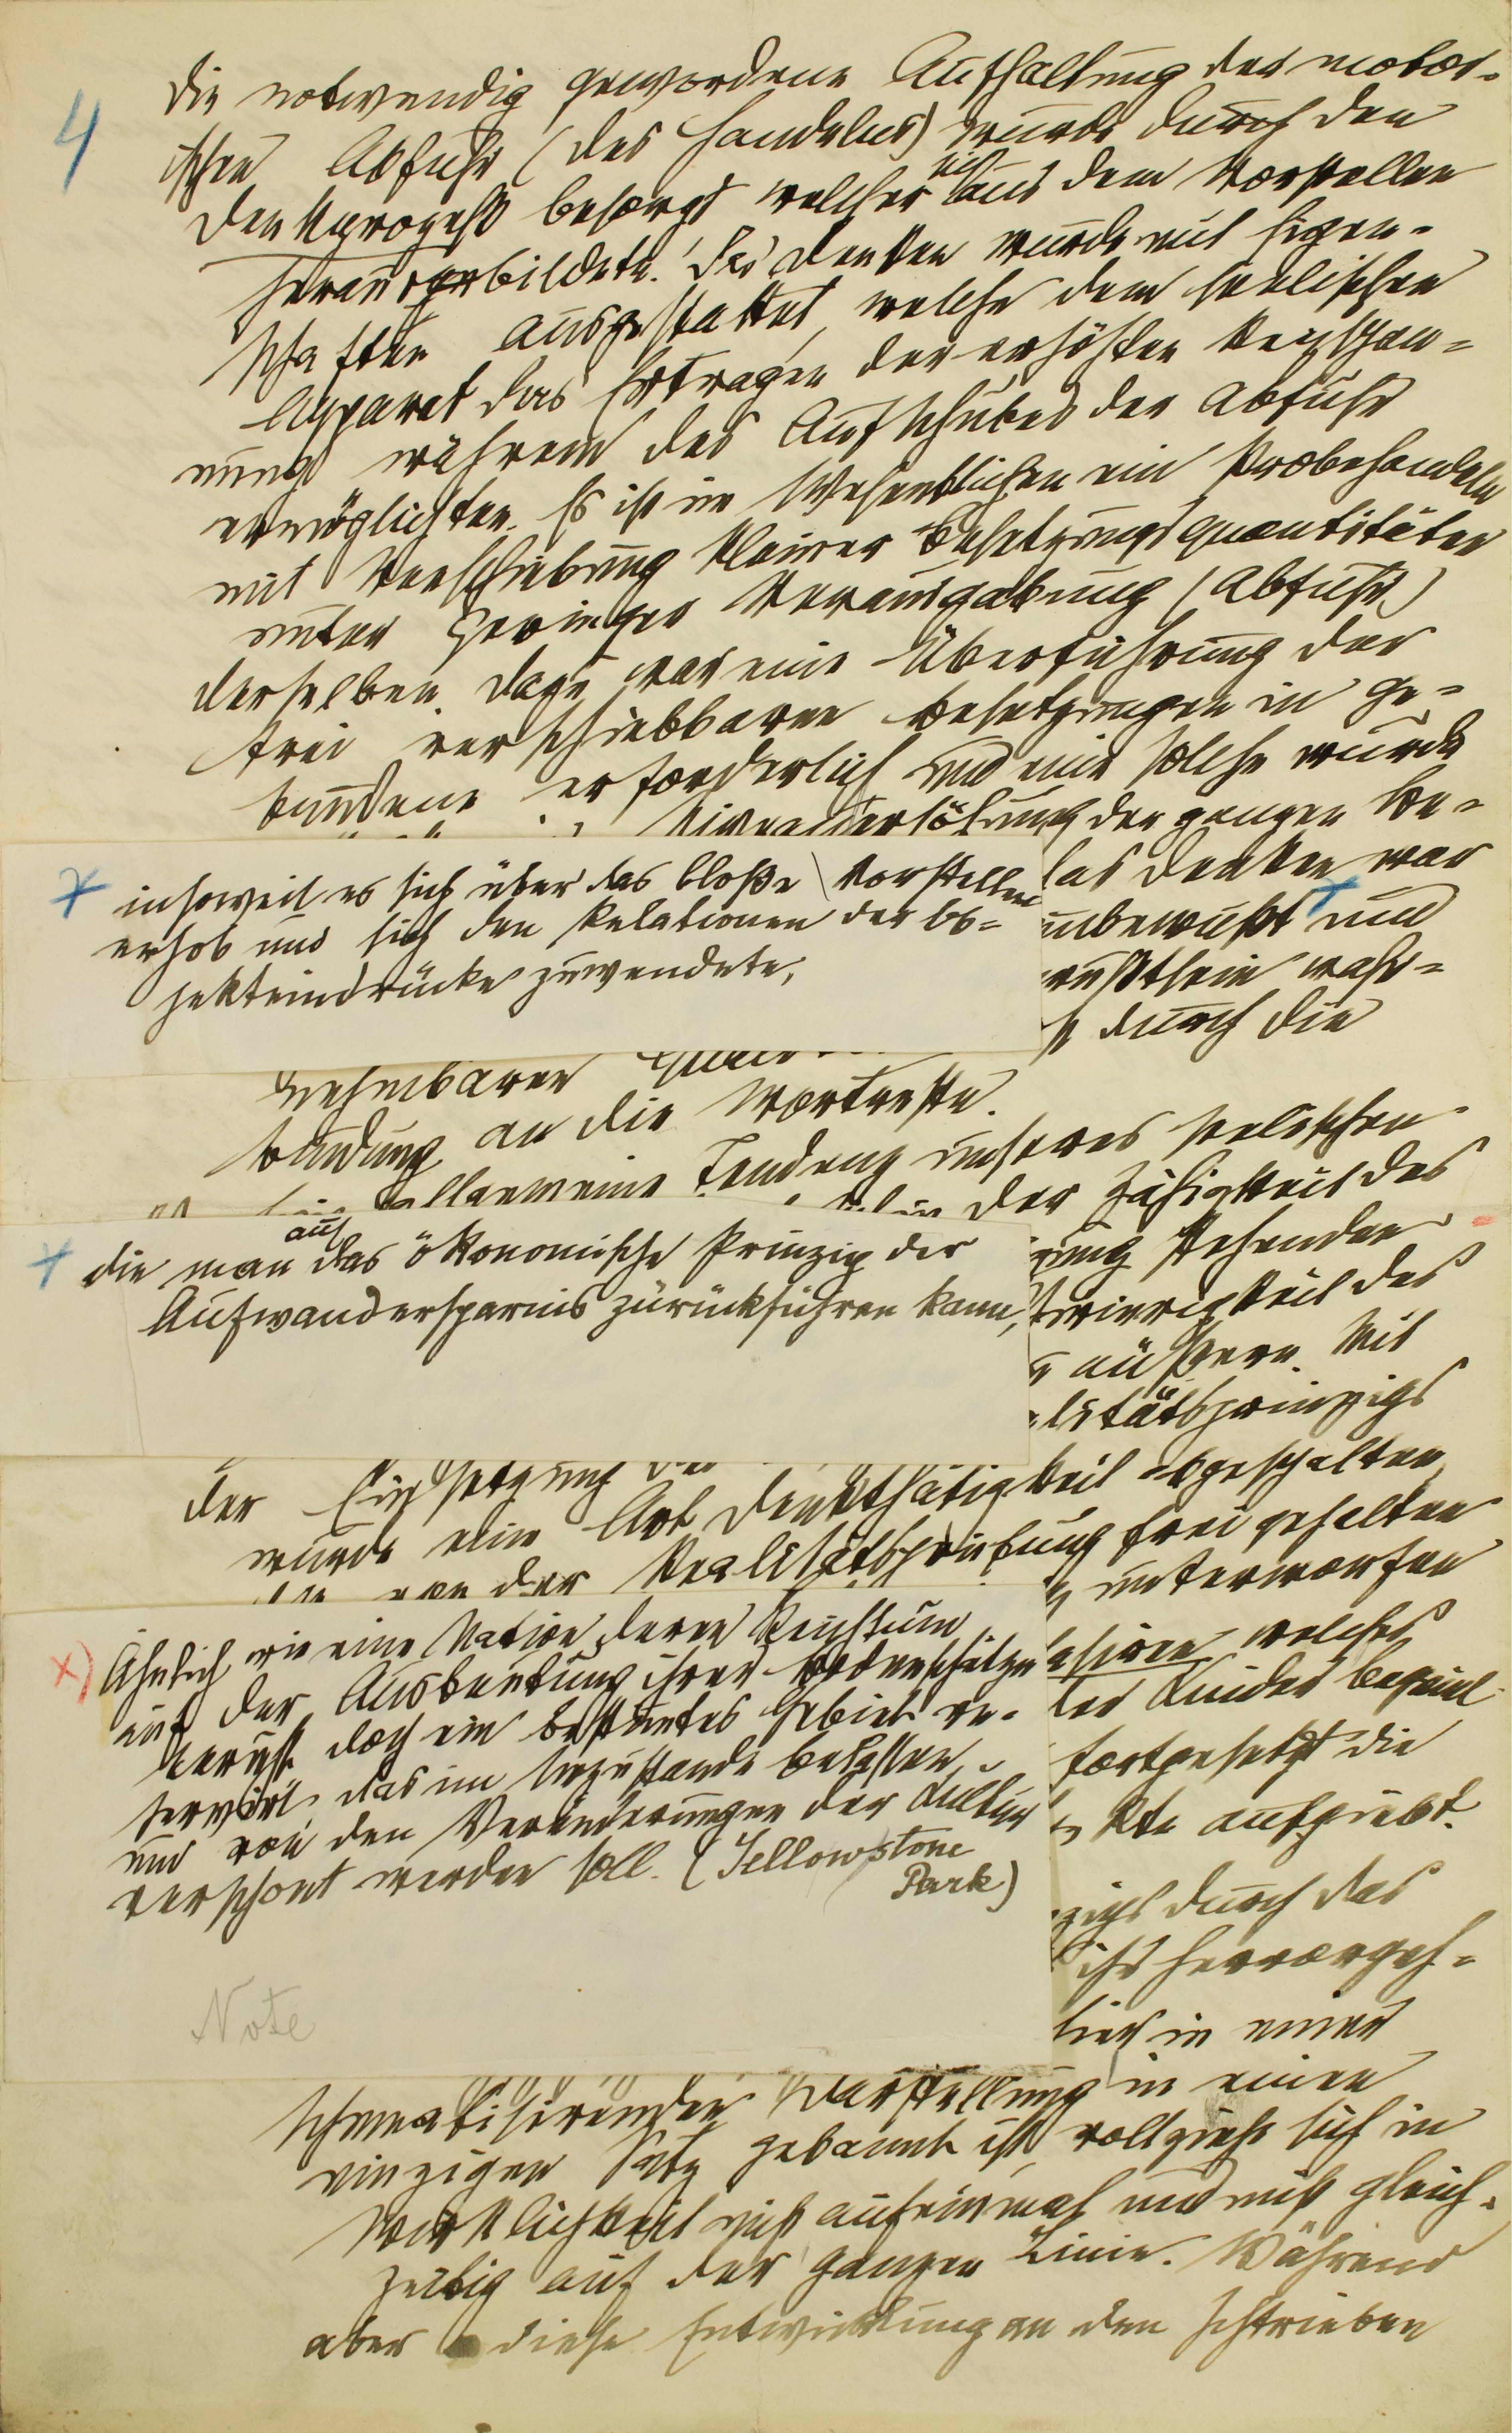 4
Die notwendig gewordene Aufhaltung der motor-
ischen Abfuhr (des Handelns) wurde durch den
Denkprozeß besorgt welcher sich aus dem Vorstellen
herausbildete. Das Denken wurde mit Eigen-
schaften ausgestattet, welche dem seelischen
Apparat das Ertragen der erhöhten Reizspan-
nung während des Aufschubes der Abfuhr
ermöglichten. Es ist im Wesentlichen ein Probehandeln
mit Verschiebung kleiner Besetzungsquantitäten
unter geringer Verausgabung (Abfuhr)
derselben. Dazu war eine Überführung der
frei verschiebbaren Besetzungen in ge-
bundene erforderlich und eine solche wurde
Niveauerhöhung der ganzen Be-
das Denken war
unbewußt + und
wußtsein wahr-
durch die
+ insoweit es sich über das bloße Vorstellen
erhob und sich den Relationen der Ob-
jekteindrücke zuwendete,
nehmbaren
bindung an die Wortreste.
allgemeine Tendenz unseres seelischen
der Zähigkeit des
stehenden
Schwierigkeit des
äußern. Mit
litätsprinzips
+ die man auf das ökonomische Prinzip der
Aufwandersparnis zurückführen kann,
der Einsetzung
wurde eine Art Denkthätigkeit abgespalten,
von der Realitätsprüfung frei gehalten
unterworfen
welches
der Kinder beginnt
fortgesetzt die
kte aufgiebt.
x) Ähnlich wie eine Nation, deren Reichtum
auf der Ausbeutung ihrer Bodenschätze
beruht, doch ein bestimtes Gebiet re-
servirt, das im Urzustande belassen
und von den Veränderungen der Kultur
verschont werden soll. (Yellowstone
Park)
Note
zips durch das
hervorgeh-
hier in einer
schematisirenden Darstellung in einen
einzigen Satz gebannt ist, vollzieht sich in
Wirklichkeit nicht auf einmal und nicht gleich-
zeitig auf der ganzen Linie. Während
aber diese Entwicklung an den Ichtrieben